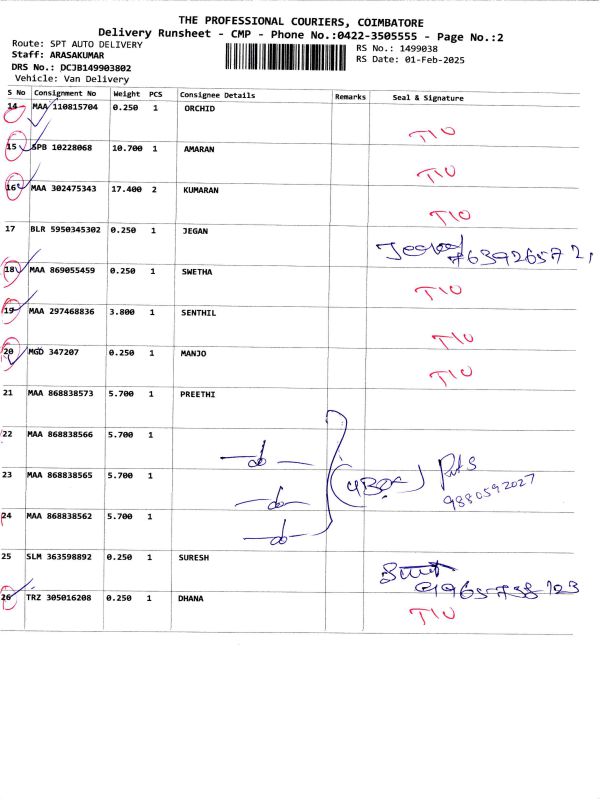 THE PROFESSIONAL COURIERS, COIMBATORE
Delivery Runsheet - CMP - Phone No.:0422-3505555 - Page No.:2
Route: SPT AUTO DELIVERY
Staff: ARASAKUMAR
DRS No.: DCJB149903802
Vehicle: Van Delivery
RS No.: 1499038
RS Date: 01-Feb-2025
S No Consignment No Weight PCS Consignee Details Remarks Seal & Signature
14 MAA 110815704 0.250 1 ORCHID T10
15 SPB 10228068 10.700 1 AMARAN T10
16 MAA 302475343 17.400 2 KUMARAN T10
17 BLR 5950345302 0.250 1 JEGAN
18 MAA 869055459 0.250 1 SWETHA T10
19 MAA 297468836 3.800 1 SENTHIL T10
20 MGD 347207 0.250 1 MANJO T10
21 MAA 868838573 5.700 1 PREETHI
22 MAA 868838566 5.700 1 —do—
23 MAA 868838565 5.700 1 —do—
24 MAA 868838562 5.700 1 —do—
9880592027
25 SLM 363598892 0.250 1 SURESH
26 TRZ 305016208 0.250 1 DHANA T10